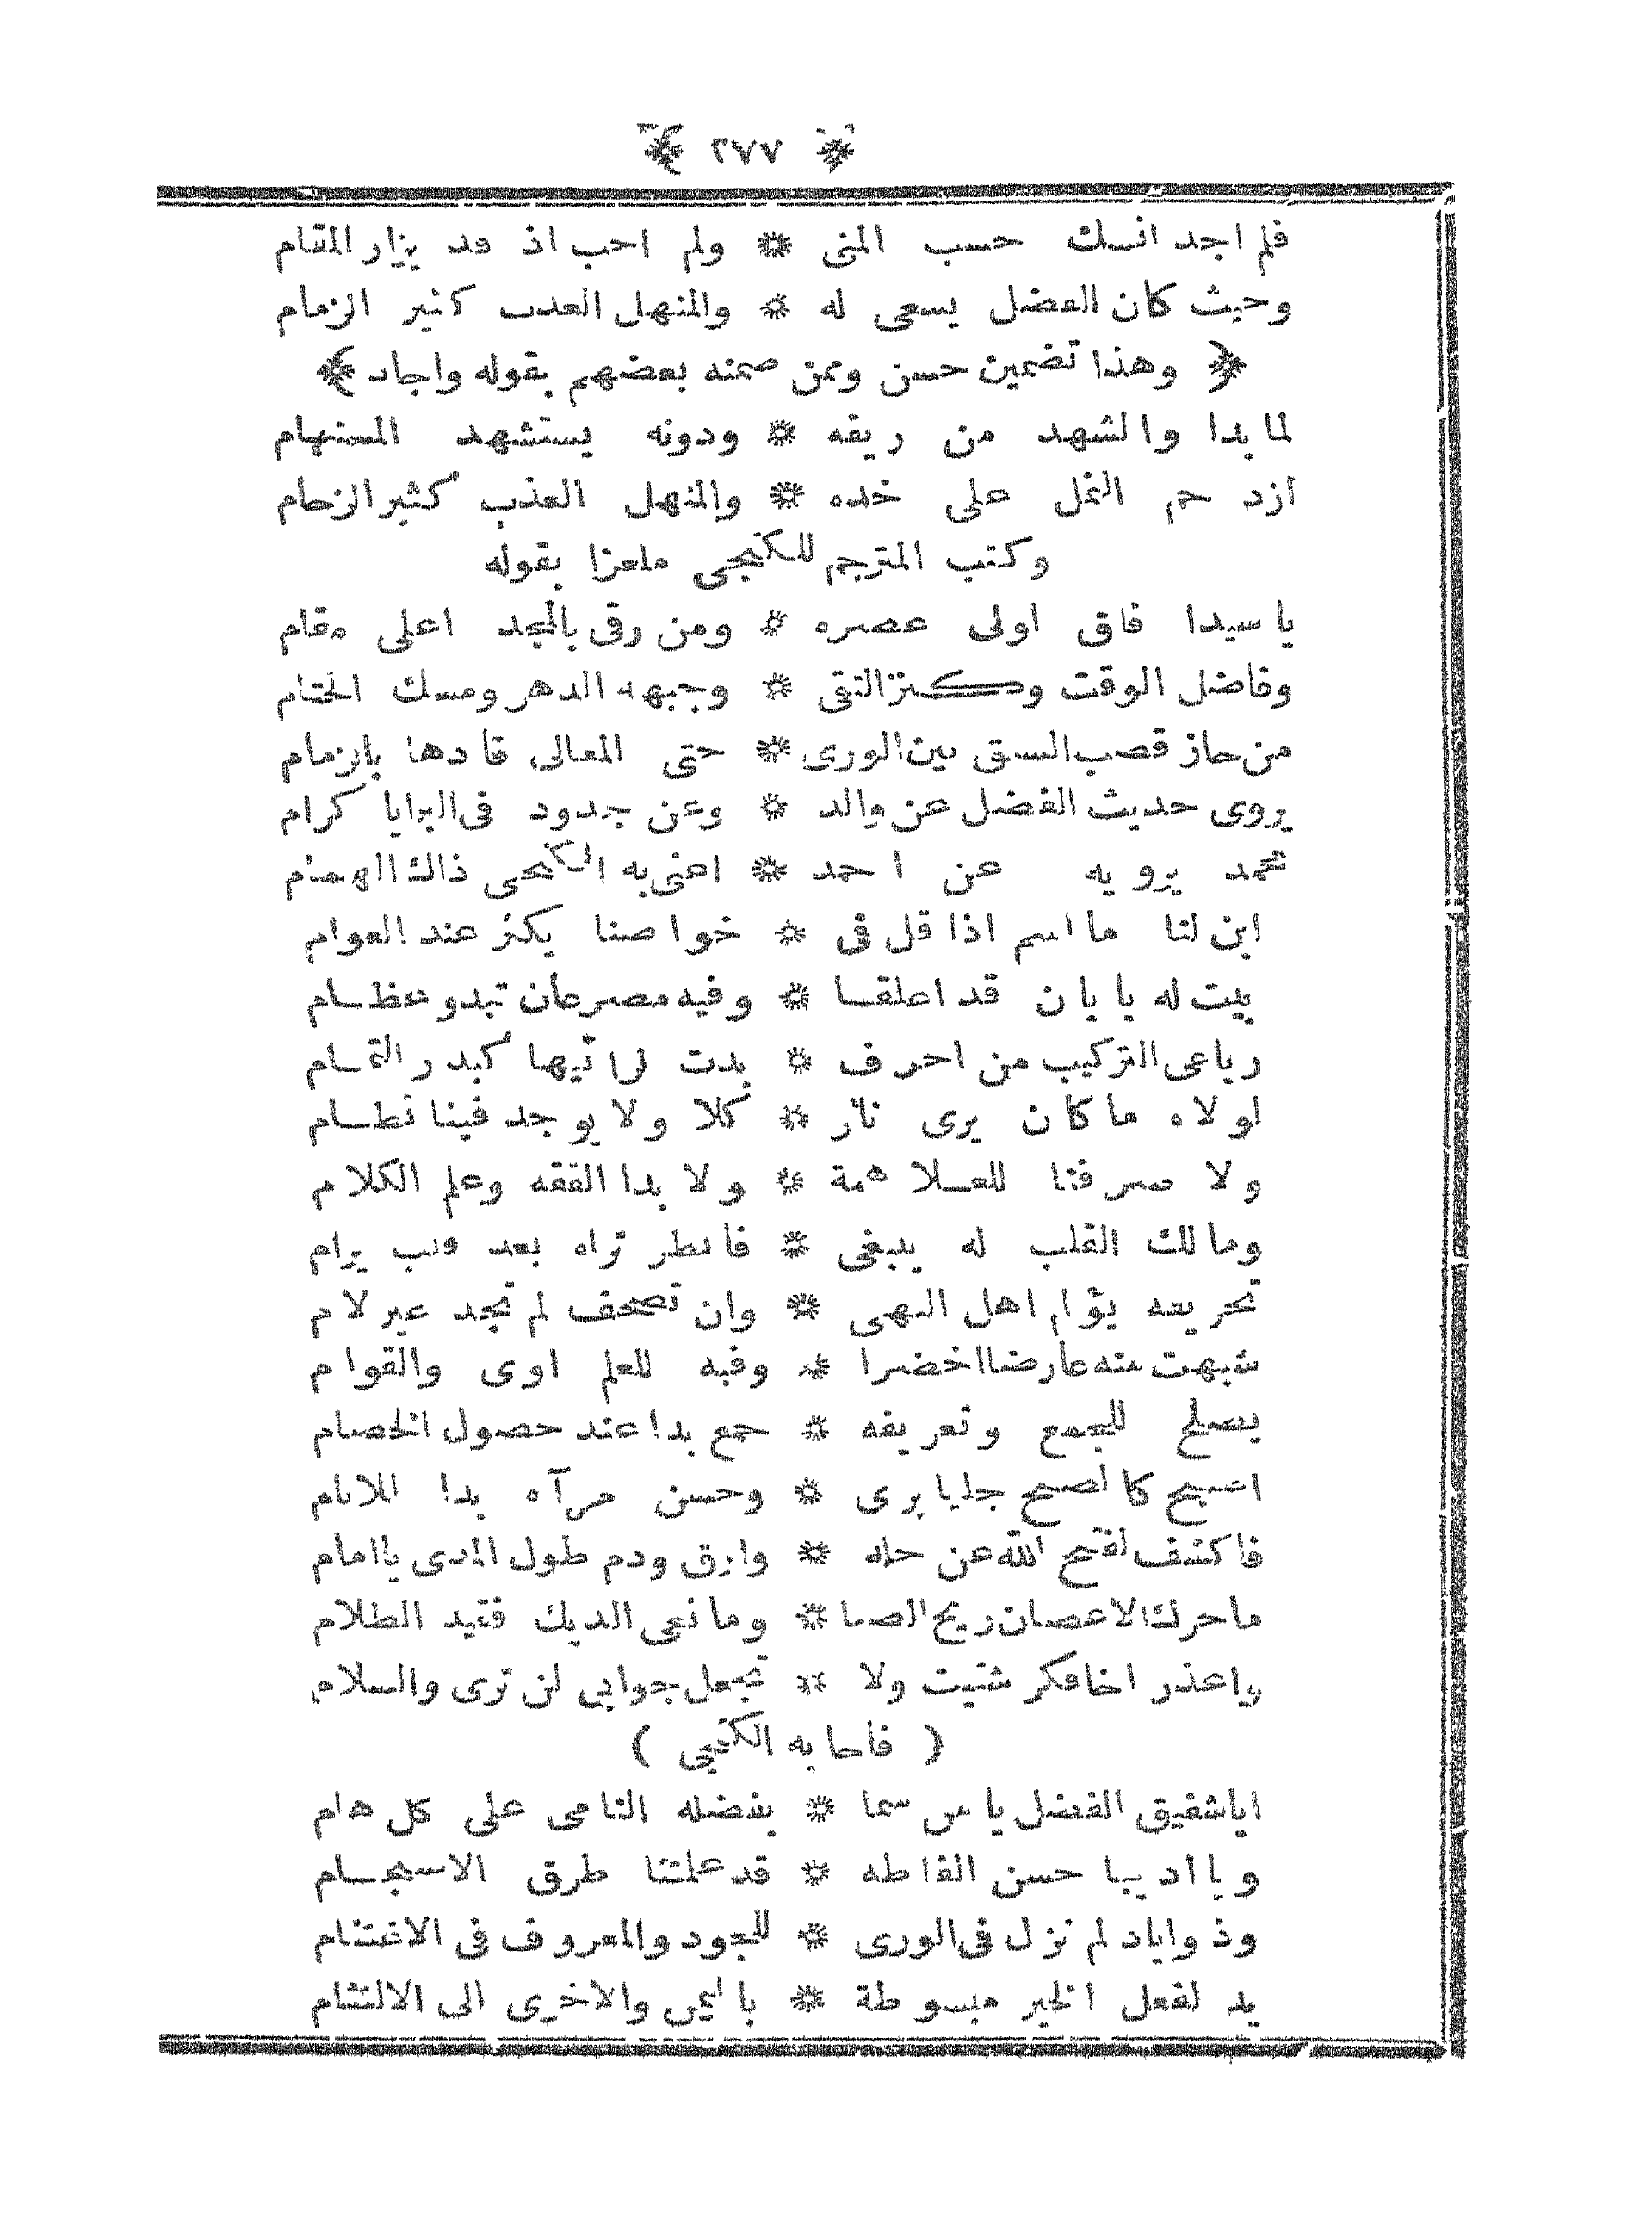 ﴿ ٢٧٧ ﴾
فلم اجد انسك حسب المنى * ولم احب اذ قد يزار المقام
وحيث كان الفضل يسعى له * والمنهل العذب كثير الزحام
﴿ وهذا تضمين حسن وممن ضمنه بعضهم بقوله واجاد ﴾
لما بدا والشهد من ريقه * ودونه يستشهد المستهام
ازدحم النمل على خده * والمنهل العذب كثير الزحام
وكتب المترجم للكنجى ملغزا بقوله
يا سيدا فاق اولى عصره * ومن رقى بالمجد اعلى مقام
وفاضل الوقت وكنز التقى * وجبهة الدهر ومسك الختام
من حاز قصب السبق بين الورى * حتى المعالى قادها بالزمام
يروى حديث الفضل عن والد * وعن جدود فى البرايا كرام
محمد يرويه عن احمد * اعنى به الكنجى ذاك الهمام
ابن لنا ما اسم اذا قل فى * خواصنا يكثر عند العوام
بيت له بابان قد اطلقا * وفيه مصرعان تبدو عظام
رباعى التركيب من احرف * بدت لرائيها كبدر التمام
لولاه ما كان يرى نائر * كلا ولا يوجد فينا نظام
ولا صرفنا للعلا همة * ولا بدا الفقه وعلم الكلام
ومالك القلب له ينبغى * فانظر تراه بعد قلب يرام
تحريفه يؤام اهل النهى * وان تصحف لم تجد غير لام
شبهت منه عارضا اخضرا * وفيه للعلم اوى والقوام
يصلح للجمع وتعريفه * جمع بدا عند حصول الخصام
اصبح كالصبح جليا يرى * وحسن مرآه بدا للانام
فاكشف لفتح الله عن حله * وارق ودم طول المدى يا امام
ما حرك الاغصان ريح الصبا * وما نعى الديك فقيد الظلام
واعذر اخا فكر شتيت ولا * تجعل جوابى لن ترى والسلام
( فاجابه الكنجى )
ايا شقيق الفضل يا من سما * بفضله النامى على كل هام
ويا اديبا حسن الفاظه * قد علمتنا طرق الانسجام
وذو اياد لم تزل فى الورى * للجود والمعروف فى الاغتنام
يد لفعل الخير مبسوطة * باليمن والاخرى الى الالتثام